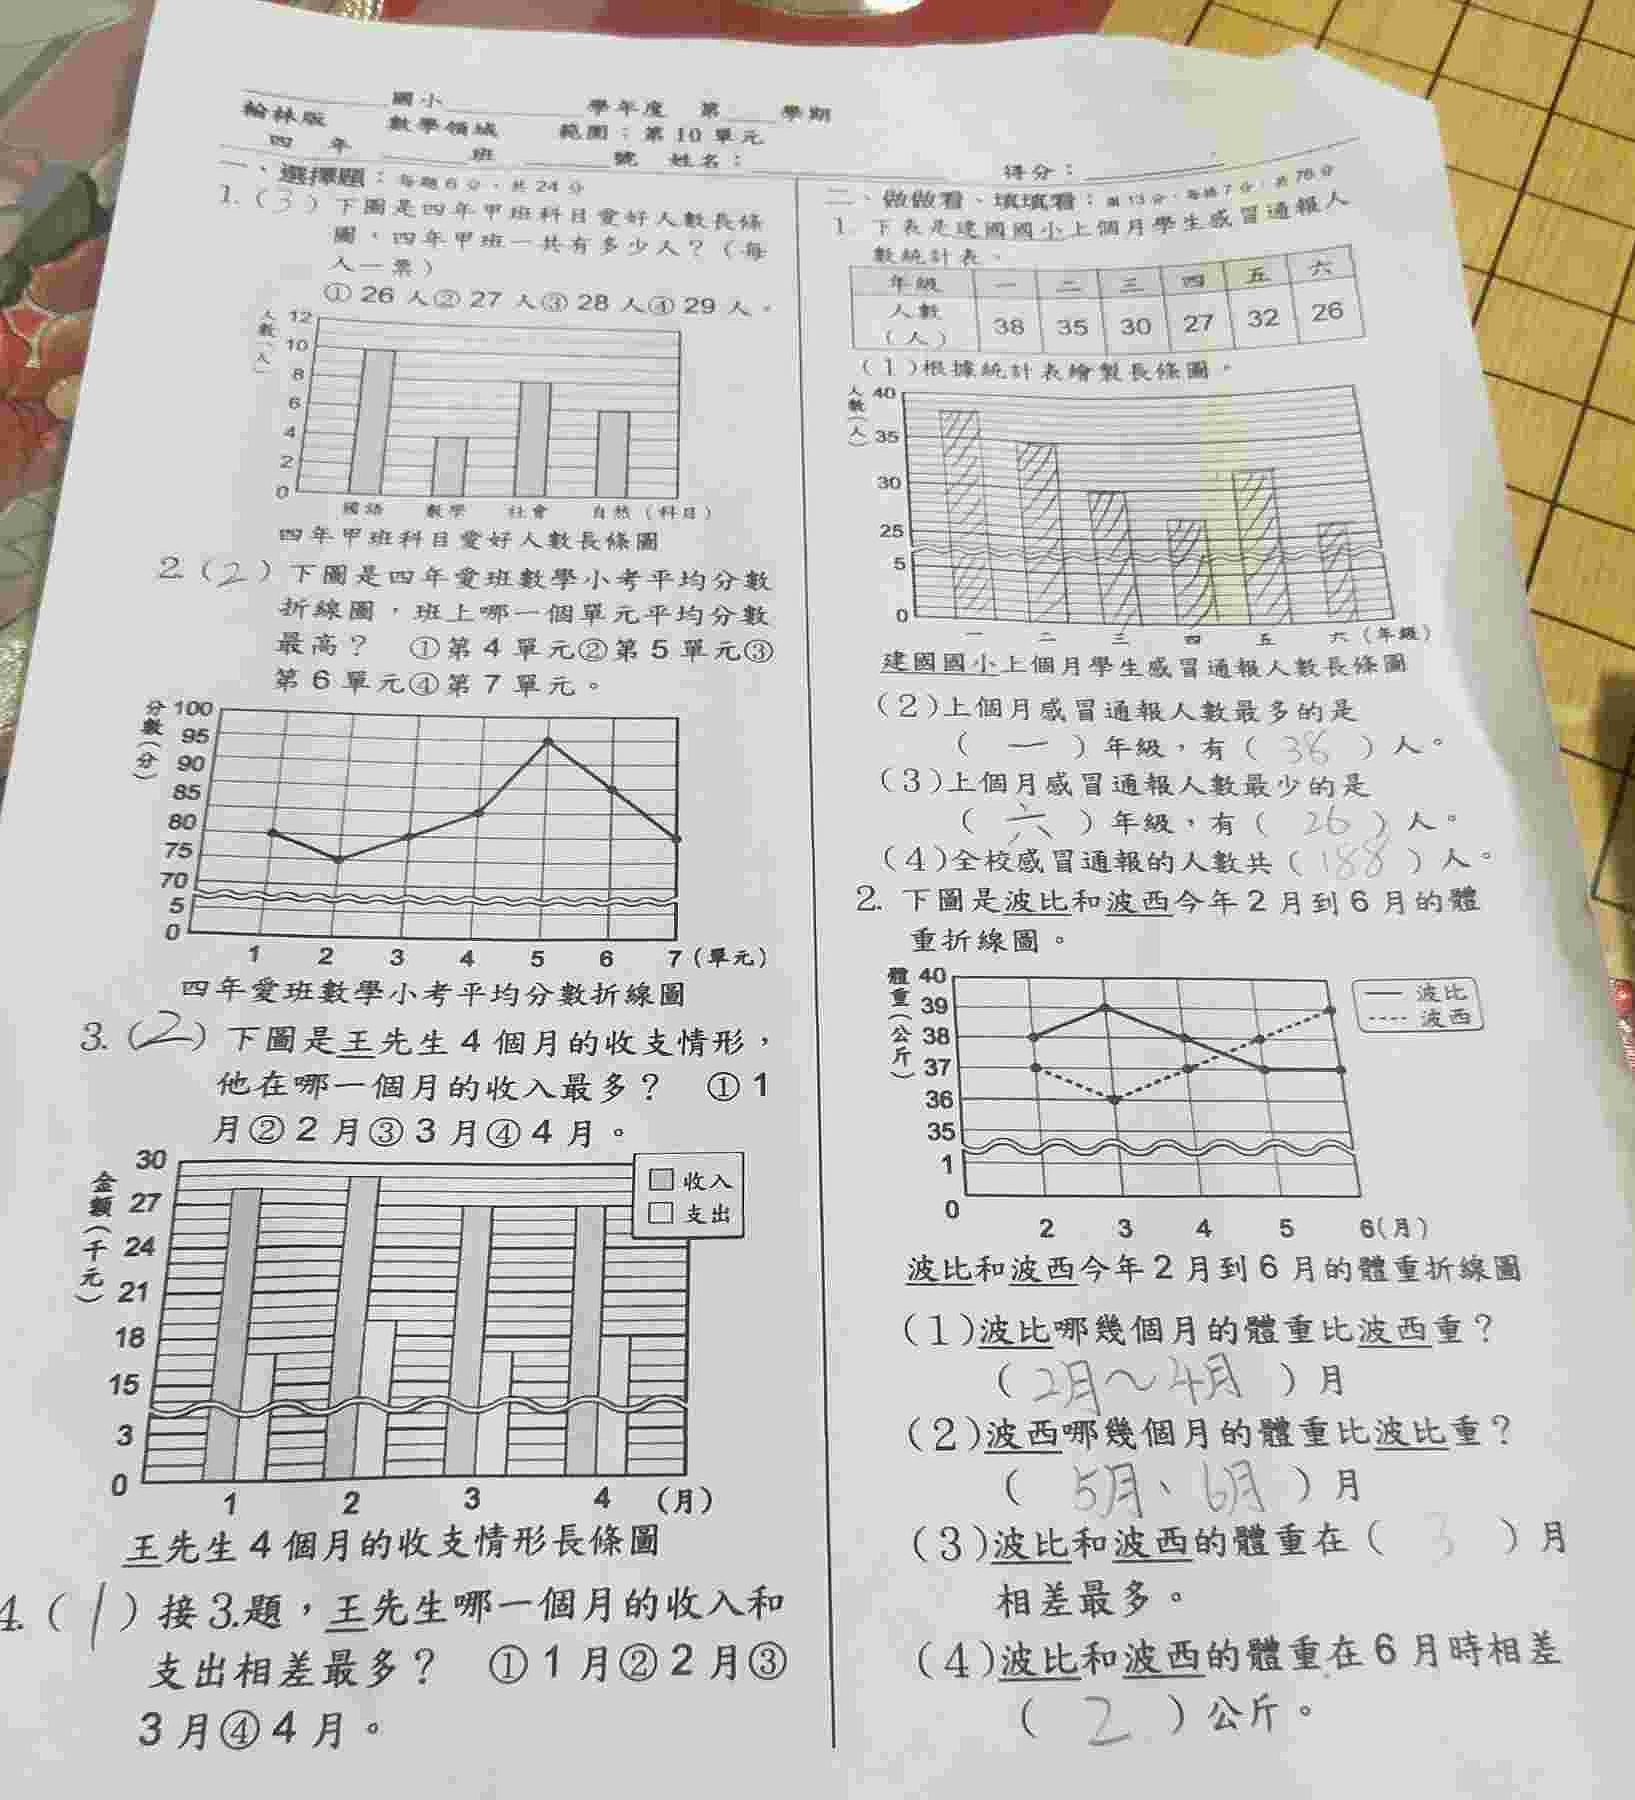 國小 學年度 第 學期
翰林版 數學領域 範圍：第10單元
四 年 班 號 姓名：
得分：
一、選擇題：每題6分，共24分
1.（3）下圖是四年甲班科目愛好人數長條
圖，四年甲班一共有多少人？（每
人一票）
①26人②27人③28人④29人。
人數（人）
12
10
8
6
4
2
0
國語 數學 社會 自然（科目）
四年甲班科目愛好人數長條圖
2.（2）下圖是四年愛班數學小考平均分數
折線圖，班上哪一個單元平均分數
最高？ ①第4單元②第5單元③
第6單元④第7單元。
分數（分）
100
95
90
85
80
75
70
5
0
1 2 3 4 5 6 7（單元）
四年愛班數學小考平均分數折線圖
3.（2）下圖是王先生4個月的收支情形，
他在哪一個月的收入最多？ ①1
月②2月③3月④4月。
金額（千元）
30
27
24
21
18
15
3
0
收入
支出
1 2 3 4 （月）
王先生4個月的收支情形長條圖
4.（1）接3.題，王先生哪一個月的收入和
支出相差最多？ ①1月②2月③
3月④4月。
二、做做看、填填看：圖13分，每格7分，共76分
1. 下表是建國國小上個月學生感冒通報人
數統計表。
年級 一 二 三 四 五 六
人數（人） 38 35 30 27 32 26
（1）根據統計表繪製長條圖。
人數（人）
40
35
30
25
5
0
一 二 三 四 五 六（年級）
建國國小上個月學生感冒通報人數長條圖
（2）上個月感冒通報人數最多的是
（一）年級，有（38）人。
（3）上個月感冒通報人數最少的是
（六）年級，有（26）人。
（4）全校感冒通報的人數共（188）人。
2. 下圖是波比和波西今年2月到6月的體
重折線圖。
體重（公斤）
40
39
38
37
36
35
1
0
波比
波西
2 3 4 5 6(月)
波比和波西今年2月到6月的體重折線圖
（1）波比哪幾個月的體重比波西重？
（2月～4月）月
（2）波西哪幾個月的體重比波比重？
（5月、6月）月
（3）波比和波西的體重在（3）月
相差最多。
（4）波比和波西的體重在6月時相差
（2）公斤。